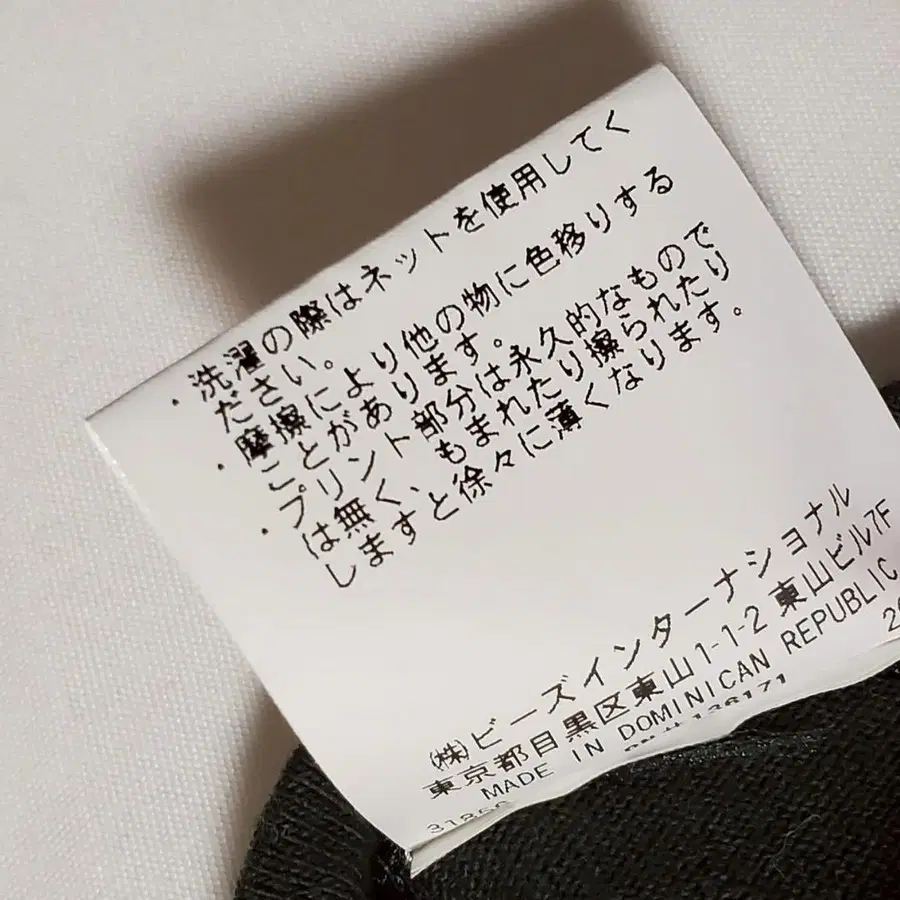 ・洗濯の際はネットを使用してく
ださい。
・摩擦により他の物に色移りする
ことがあります。
・プリント部分は永久的なもので
は無く、もまれたり擦られたり
しますと徐々に薄くなります。
㈱ビーズインターナショナル
東京都目黒区東山1-1-2 東山ビル7F
MADE IN DOMINICAN REPUBLIC